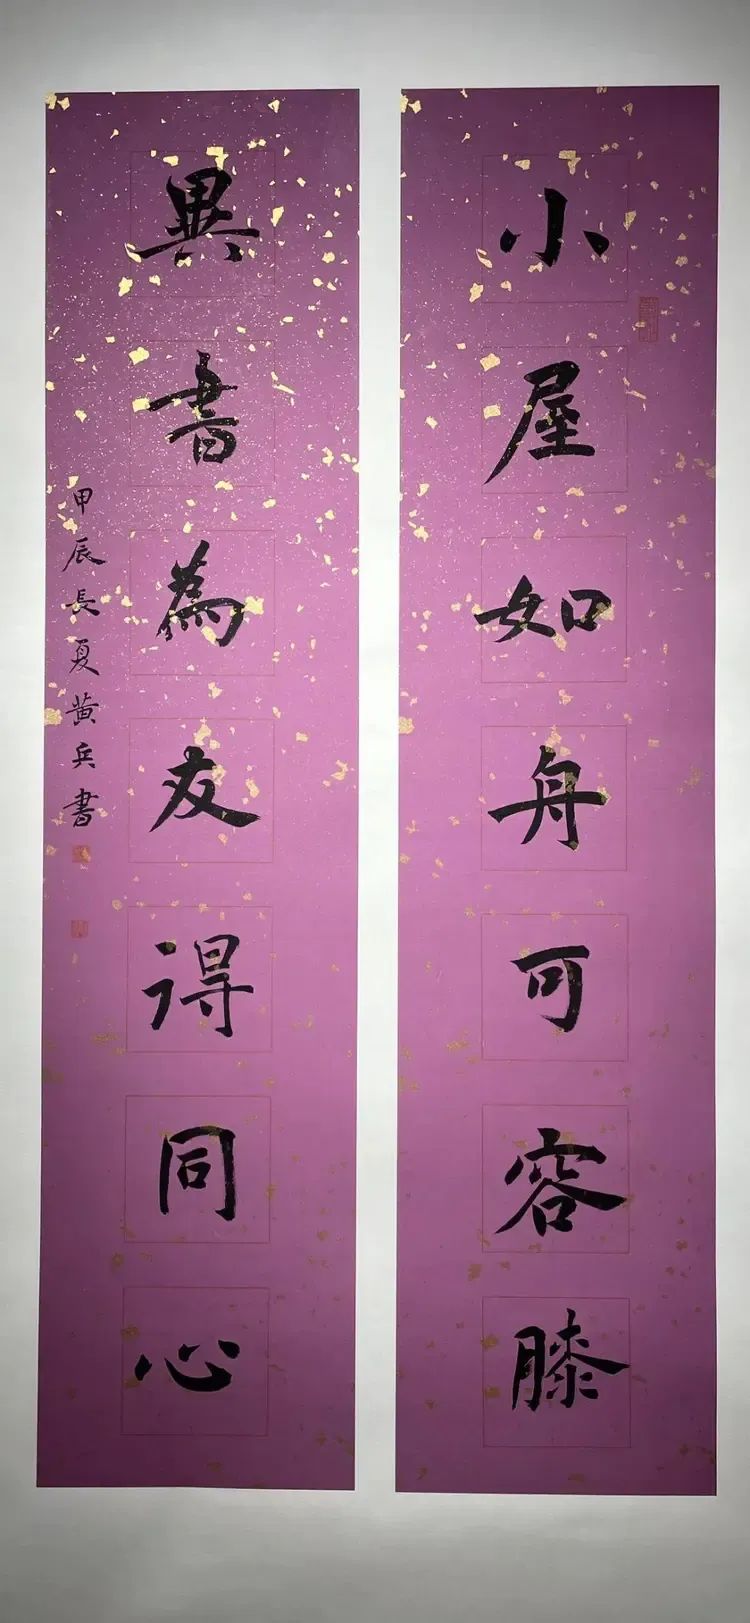 小屋如舟可容膝
異書為友得同心
甲辰長夏黄兵書